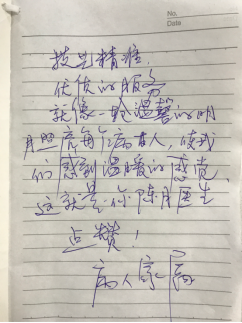 No.
Date
技艺精难,
优质的服务
就像一轮温馨的明
月照亮每个病人,使我
们感到温暖的感觉,
这就是你陈月医生
点赞!
病人家属